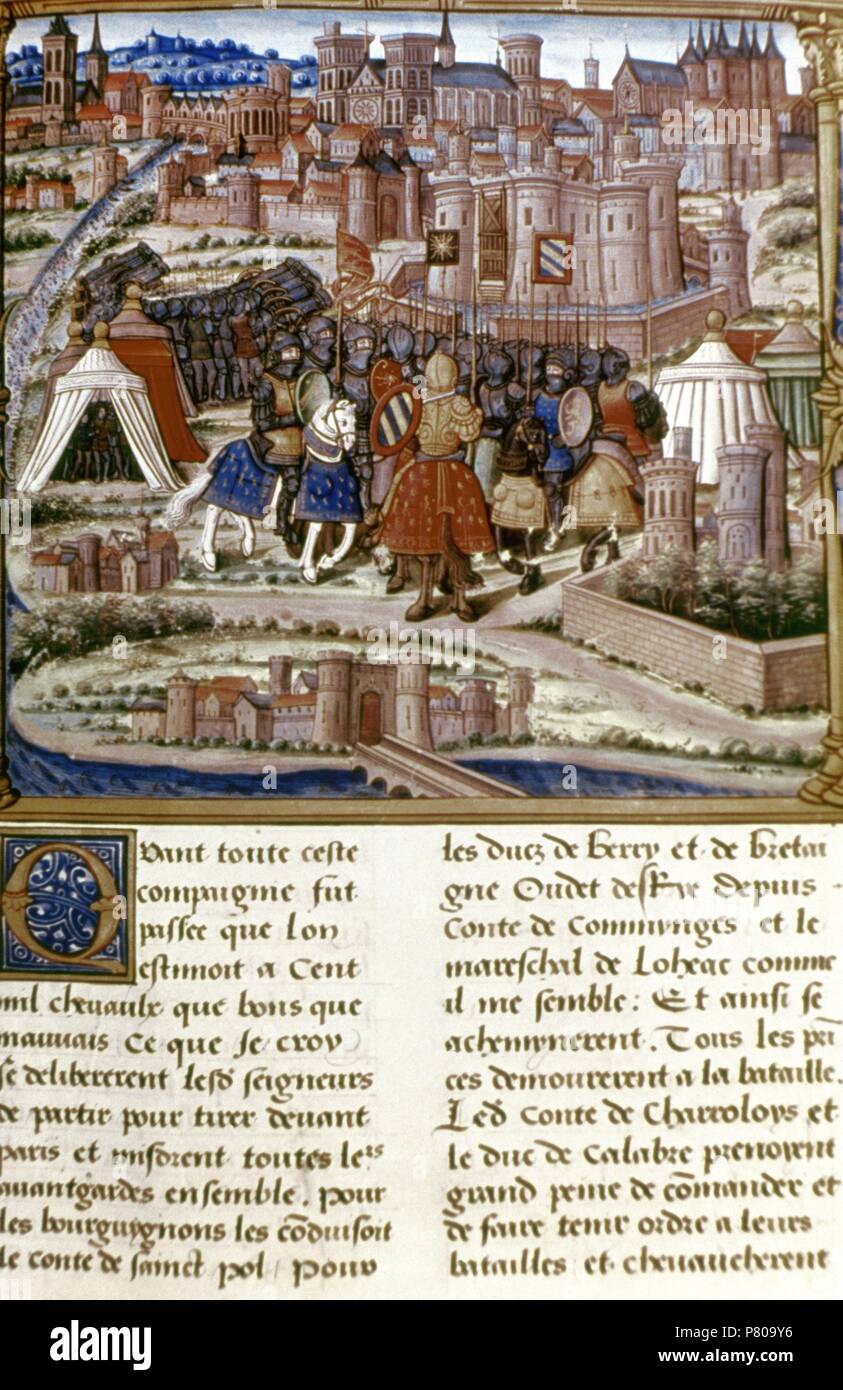 Quant toute ceste
compaignie fut
passee que lon
estimoit a Cent
mil chevaulx que bons que
mauvais Ce que Je croy
se delibererent lesd seigneurs
de partir pour tirer devant
paris et misdrent toutes le^rs
avantgardes ensemble. pour
les bourguygnons les cōduisoit
le conte de sainct pol pour
les ducz de berry et de bretai
gne Oudet de Rye depuis -
Conte de Commynges et le
mareschal de Loheac comme
il me semble: Et ainsi se
acheminerent. Tous les pri
ces demourerent a la bataille.
Led Conte de Charroloys et
le duc de Calabre prenoyent
grand peine de cōmander et
de faire tenir ordre a leurs
batailles et chevaucherent
alamy
Image ID: P809Y6
www.alamy.com